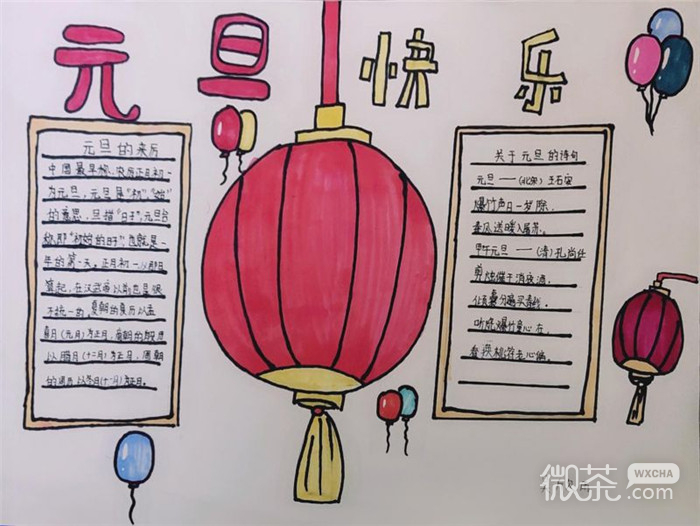 元旦快乐
元旦的来历
中国最早称农历正月初一
为元旦，元旦是"初""始"
的意思，旦指"日子"，元旦合
称即"初始的日子"，也就是一
年的第一天。正月初一从哪日
算起，在汉武帝以前也是很
不统一的，夏朝的夏历以孟
春月（元月）为正月，商朝的殷历
以腊月（十二月）为正月，周朝
的周历以冬月（十一月）为正月。
关于元旦的诗句
元旦——（北宋）王石安
爆竹声日一岁除，
春风送暖入屠苏。
甲午元旦——（清）孔尚任
剪烛催干消夜酒，
倾囊分遍买春钱。
听烧爆竹童心在，
看换桃符老兴偏。
微茶
WXCHA
.com